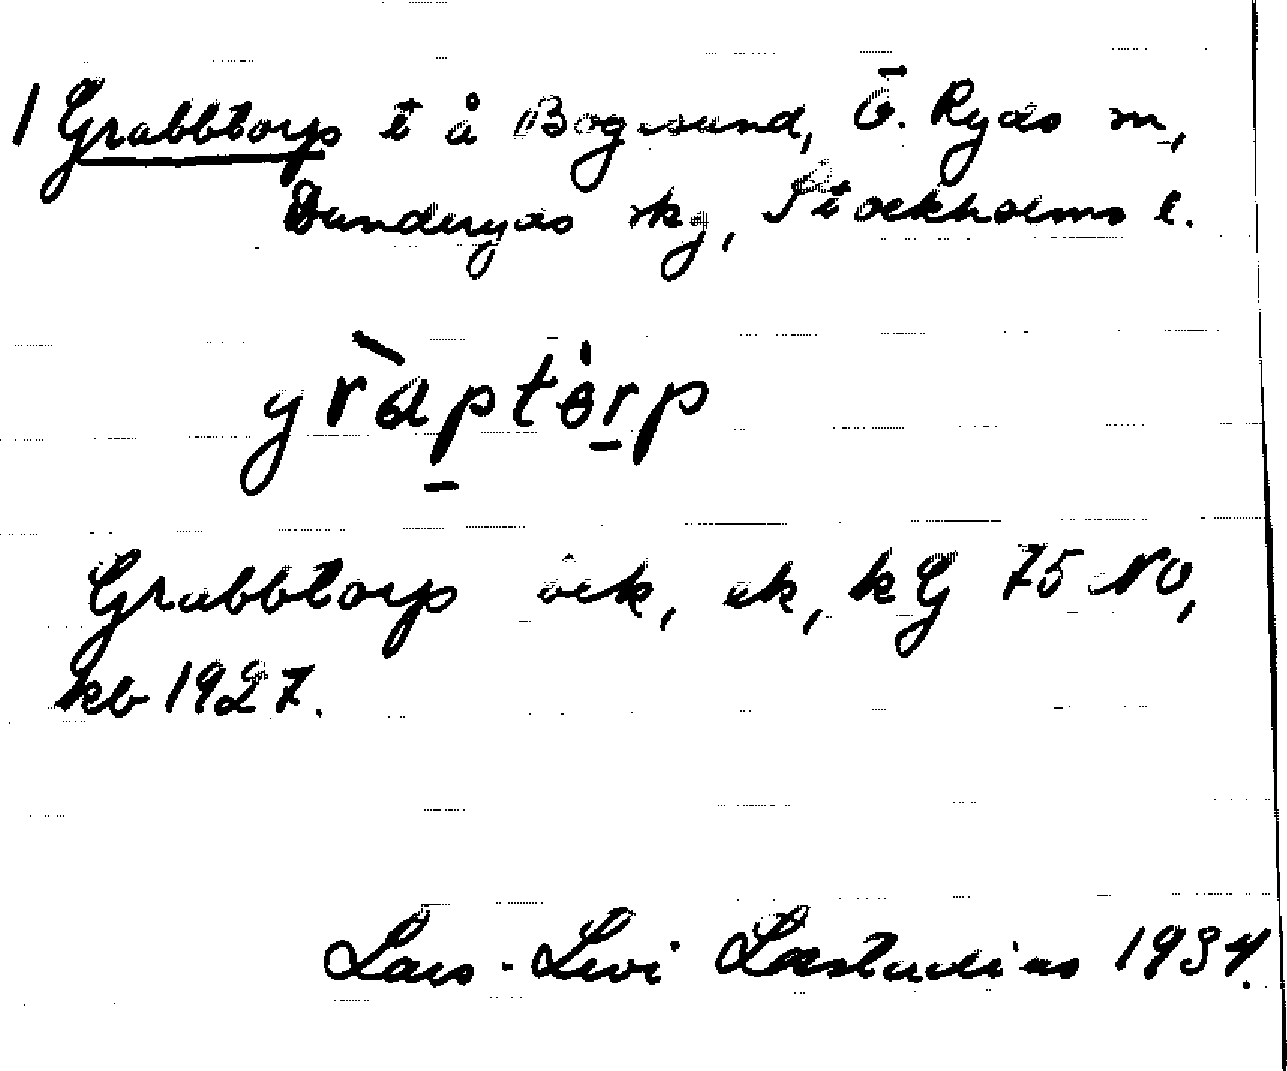 1 Grabbtorp t å Bogesund, Ö. Ryds sn,
Danderyds skg, Stockholms l.
gràptòrp
Grabbtorp ack, ek, kG 75 NO,
kb 1927.
Lars-Levi Læstadius 1934.